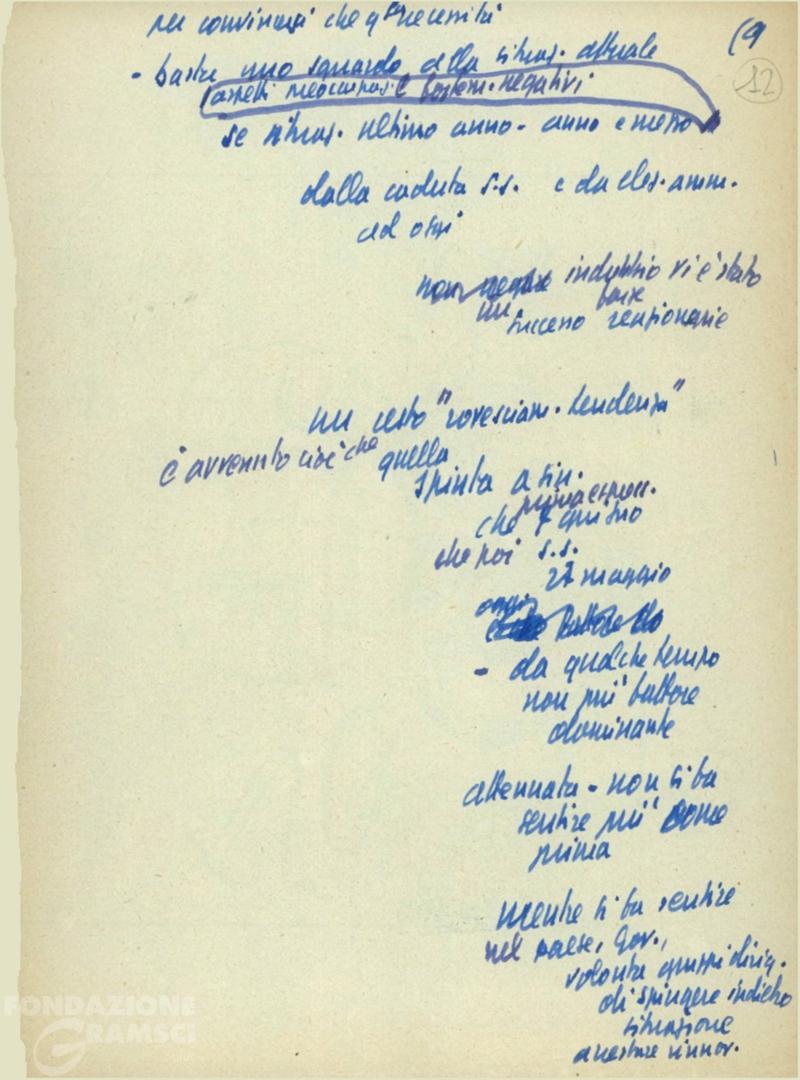 per convincersi che qta necessità
(9
12
- basta uno sguardo alla situaz. attuale
(aspetti preoccupas. e fortem. negativi
se situaz. ultimo anno - anno e mezzo
dalla caduta s.s. e da elez. amm.
ad oggi
non indubbio vi è stato
un succeso forze reazionarie
un certo "rovesciam. tendenza"
è avvenuto cioè che quella
spinta a sin.
che prima espress. 7 giugno
che poi s.s.
27 maggio
oggi
- da qualche tempo
non più fattore
dominante
attenuata - non si fa
sentire più come
prima
mentre si fa sentire
nel paese, Gov.,
volontà gruppi dirig.
di spingere indietro
situazione
arrestare rinnov.
FONDAZIONE
GRAMSCI